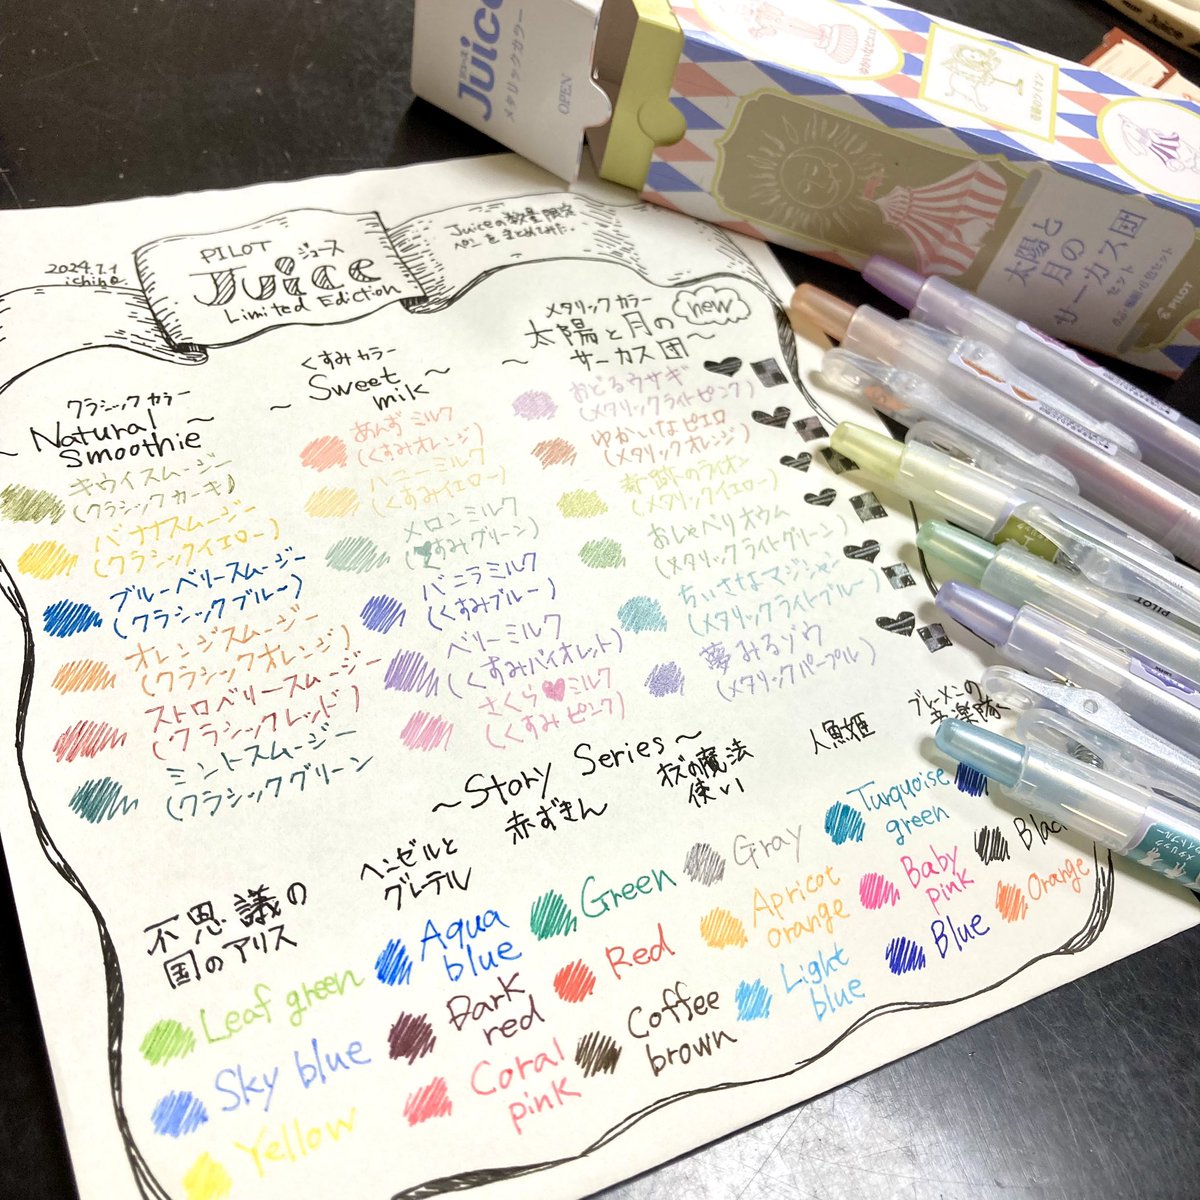 Juice
ジュース
メタリックカラー
OPEN
ゆかいなピエロ
奇跡のライオン
太陽と
月の
サーカス団
セット
PILOT
2024.7.1
ichiho
PILOT
ジュース
Juice
Limited Ediction
Juiceの数量限定
ペンをまとめてみた。
クラシックカラー
～Natural～
Smoothie
キウイスムージー
(クラシックカーキ)
バナナスムージー
(クラシックイエロー)
ブルーベリースムージー
(クラシックブルー)
オレンジスムージー
(クラシックオレンジ)
ストロベリースムージー
(クラシックレッド)
ミントスムージー
(クラシックグリーン)
くすみカラー
～Sweet～
milk
あんずミルク
(くすみオレンジ)
ハニーミルク
(くすみイエロー)
メロンミルク
(くすみグリーン)
バニラミルク
(くすみブルー)
ベリーミルク
(くすみバイオレット)
さくら♥ミルク
(くすみピンク)
メタリックカラー
new
～太陽と月の
サーカス団～
おどるウサギ
(メタリックライトピンク)
ゆかいなピエロ
(メタリックオレンジ)
奇跡のライオン
(メタリックイエロー)
おしゃべりオウム
(メタリックライトグリーン)
ちいさなマジシャン
(メタリックライトブルー)
夢みるゾウ
(メタリックパープル)
～Story Series～
不思議の
国のアリス
Leaf green
Sky blue
Yellow
ヘンゼルと
グレーテル
Aqua
blue
Dark
red
Coral
pink
赤ずきん
Green
Red
Coffee
brown
オズの魔法
使い
Gray
Apricot
orange
Light
blue
人魚姫
Turquoise
green
Baby
pink
Blue
ブレーメンの
音楽隊
Blac
Orange
PILOT
メタリック
ライトブルー